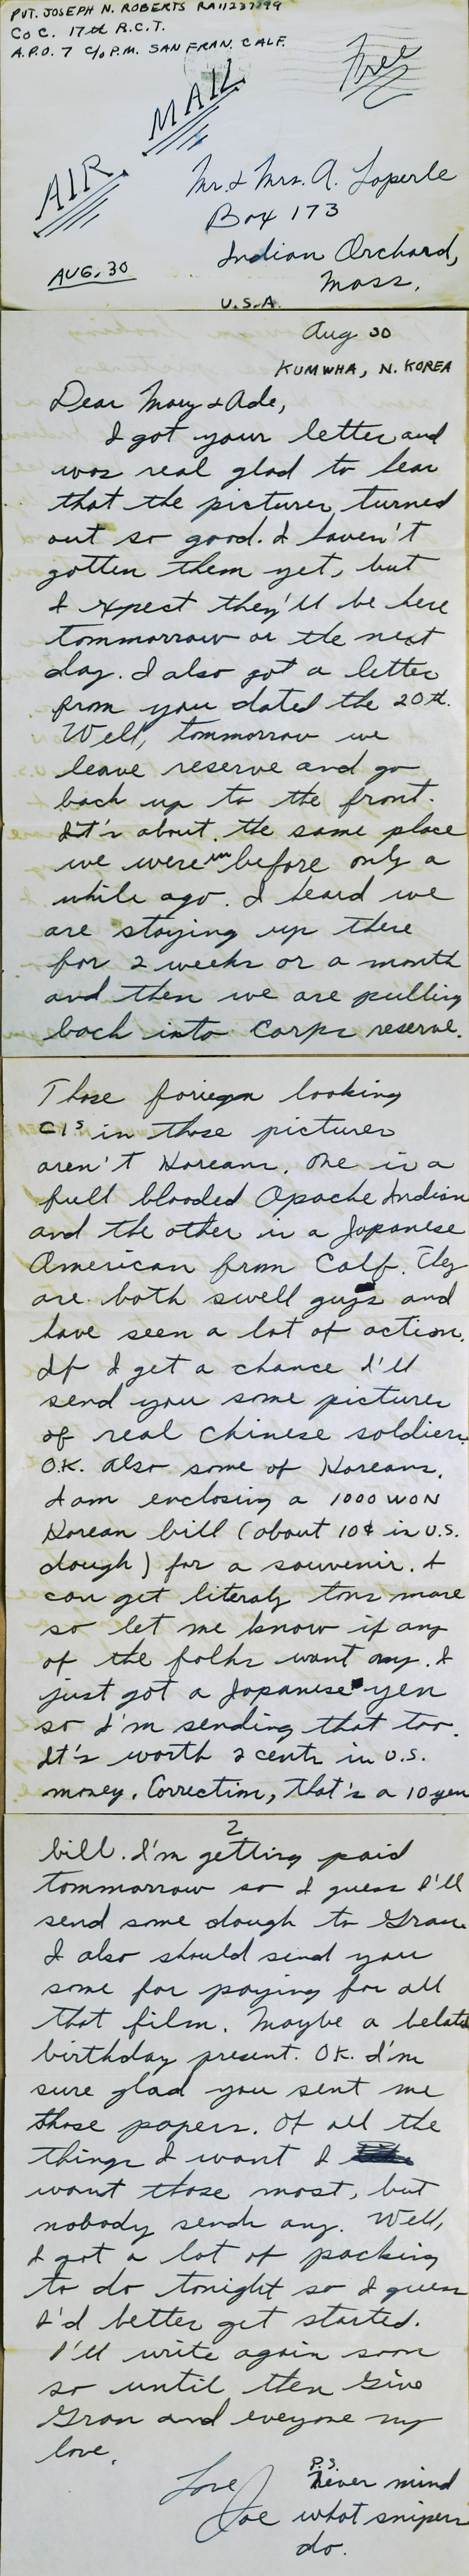 PVT. JOSEPH N. ROBERTS RA11237899
CO C. 17th R.C.T.
A.P.O. 7 C/O P.M. SAN FRAN. CALF.
Free
AIR MAIL
Mr. & Mrs. A. Laperle
Box 173
Indian Orchard,
Mass.
AUG. 30
U.S.A.
Aug 30
KUMWHA, N. KOREA
Dear Mary & Ade,
I got your letter and
was real glad to hear
that the pictures turned
out so good. I haven't
gotten them yet, but
I expect they'll be here
tommorrow or the next
day. I also got a letter
from you dated the 20th.
Well, tommorrow we
leave reserve and go
back up to the front.
It's about the same place
we were in before only a
while ago. I heard we
are staying up there
for 2 weeks or a month
and then we are pulling
back into Corps reserve.
Those foriegn looking
GIs in those pictures
aren't Koreans. One is a
full blooded Apache Indian
and the other is a Japanese
American from Calf. They
are both swell guys and
have seen a lot of action.
If I get a chance I'll
send you some pictures
of real Chinese soldiers
O.K. also some of Koreans.
I am enclosing a 1000 WON
Korean bill (about 10¢ in U.S.
dough) for a souvenir. I
can get literaly tons more
so let me know if any
of the folks want any. I
just got a Japanese yen
so I'm sending that too.
It's worth 2 cents in U.S.
money. Correction, that's a 10 yen
2
bill. I'm getting paid
tommorrow so I guess I'll
send some dough to Gran.
I also should send you
some for paying for all
that film. Maybe a belated
birthday present. OK. I'm
sure glad you sent me
those papers. Of all the
things I want I
want those most, but
nobody sends any. Well,
I got a lot of packing
to do tonight so I guess
I'd better get started.
I'll write again soon
so until then give
Gran and eveyone my
love.
Love
Joe
P.S.
Never mind
what snipers
do.